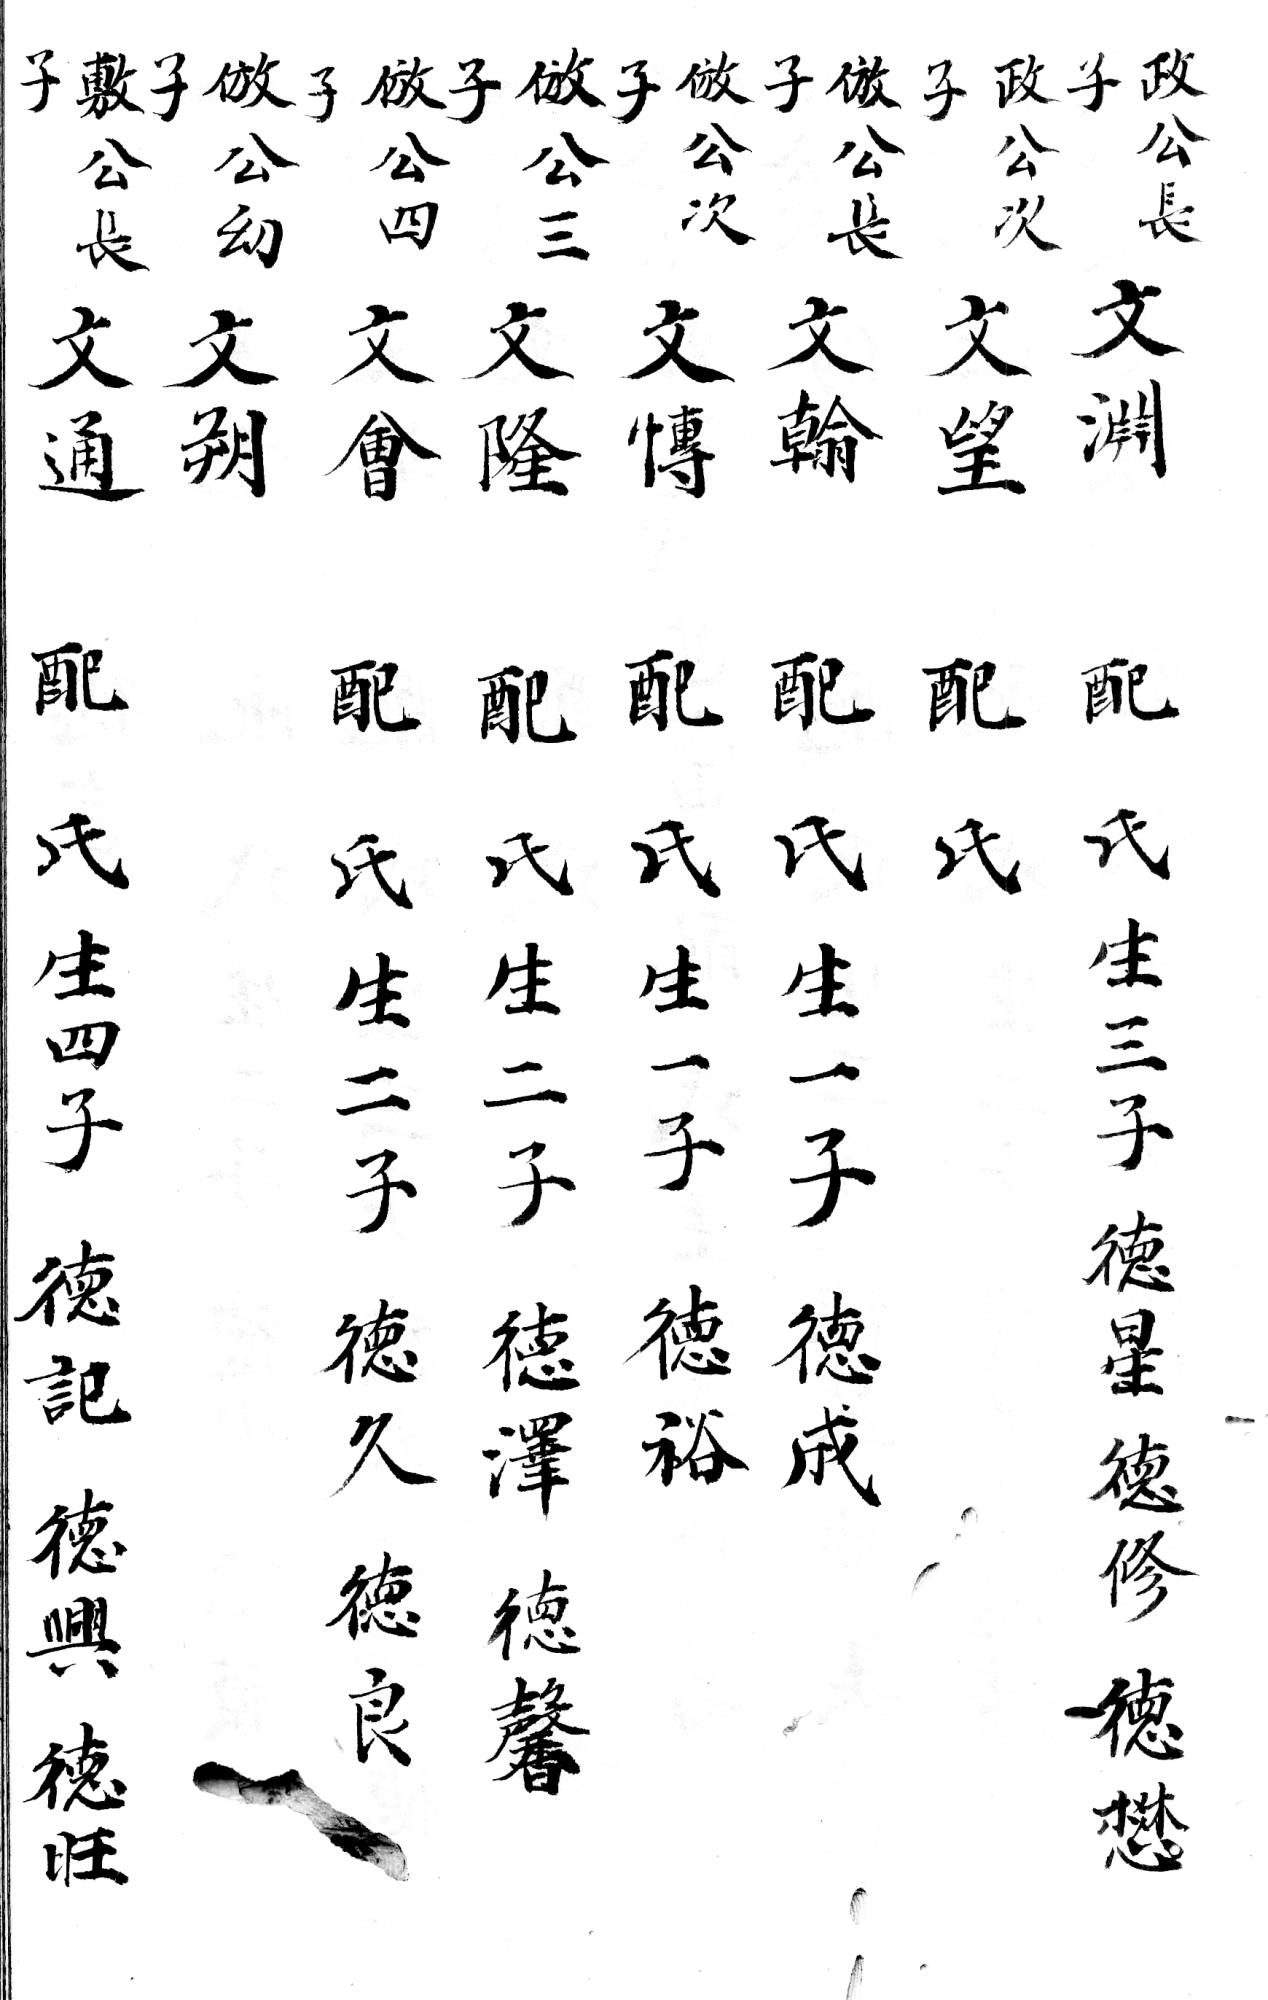 政公長子 文淵 配 氏生三子 德星 德修 德懋
政公次子 文望 配 氏
倣公長子 文翰 配 氏生一子 德成
倣公次子 文愽 配 氏生一子 德裕
倣公三子 文隆 配 氏生二子 德澤 德馨
倣公四子 文會 配 氏生二子 德久 德良
倣公幼子 文朔
敷公長子 文通 配 氏生四子 德記 德興 德旺